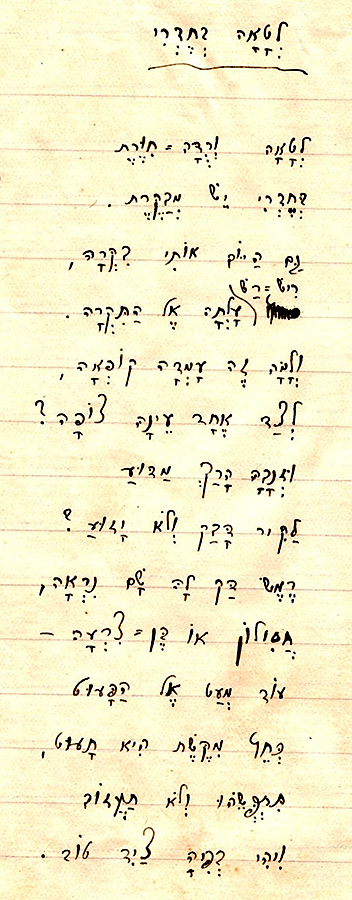 לְטָאָה בְּחֶדְרִי
לְטָאָה וְרֻדָּה=חִוֶּרֶת
בְּחֶדְרִי יֵשׁ מְבַקֶּרֶת.
גַּם הַיּוֹם אוֹתִי בִּקְּרָה,
רִישׁ=רַשׁ
עָלְתָה אֶל הַתִּקְרָה.
וְלָמָּה זֶה עָמְדָה קוֹפְאָה,
לְצַד אֶחָד עֵינָהּ צוֹפָה?
וּזְנָבָהּ הָרַךְ מַדּוּעַ
לַקִּיר דָּבַק וְלֹא יָזוּעַ?
רֶמֶשׂ דַּק לָהּ שָׁם נִרְאָה,
חֲסִילוֹן אוֹ בֶּן=צִרְעָה –
עוֹד מְעַט אֶל הַפָּעוּט
כְּחֵץ מִקֶּשֶׁת הִיא תָּעוּט,
תִּתְפְּשֵׂהוּ וְלֹא תַּעֲזוֹב
וִיהִי בְּפִיהָ צַיִד טוֹב.